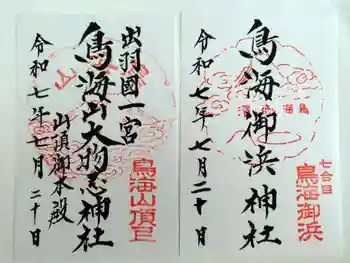 鳥海御浜神社
令和七年七月二十日
七合目
鳥海御浜
出羽國一宮
鳥海山大物忌神社
山頂御本殿
令和七年七月二十日